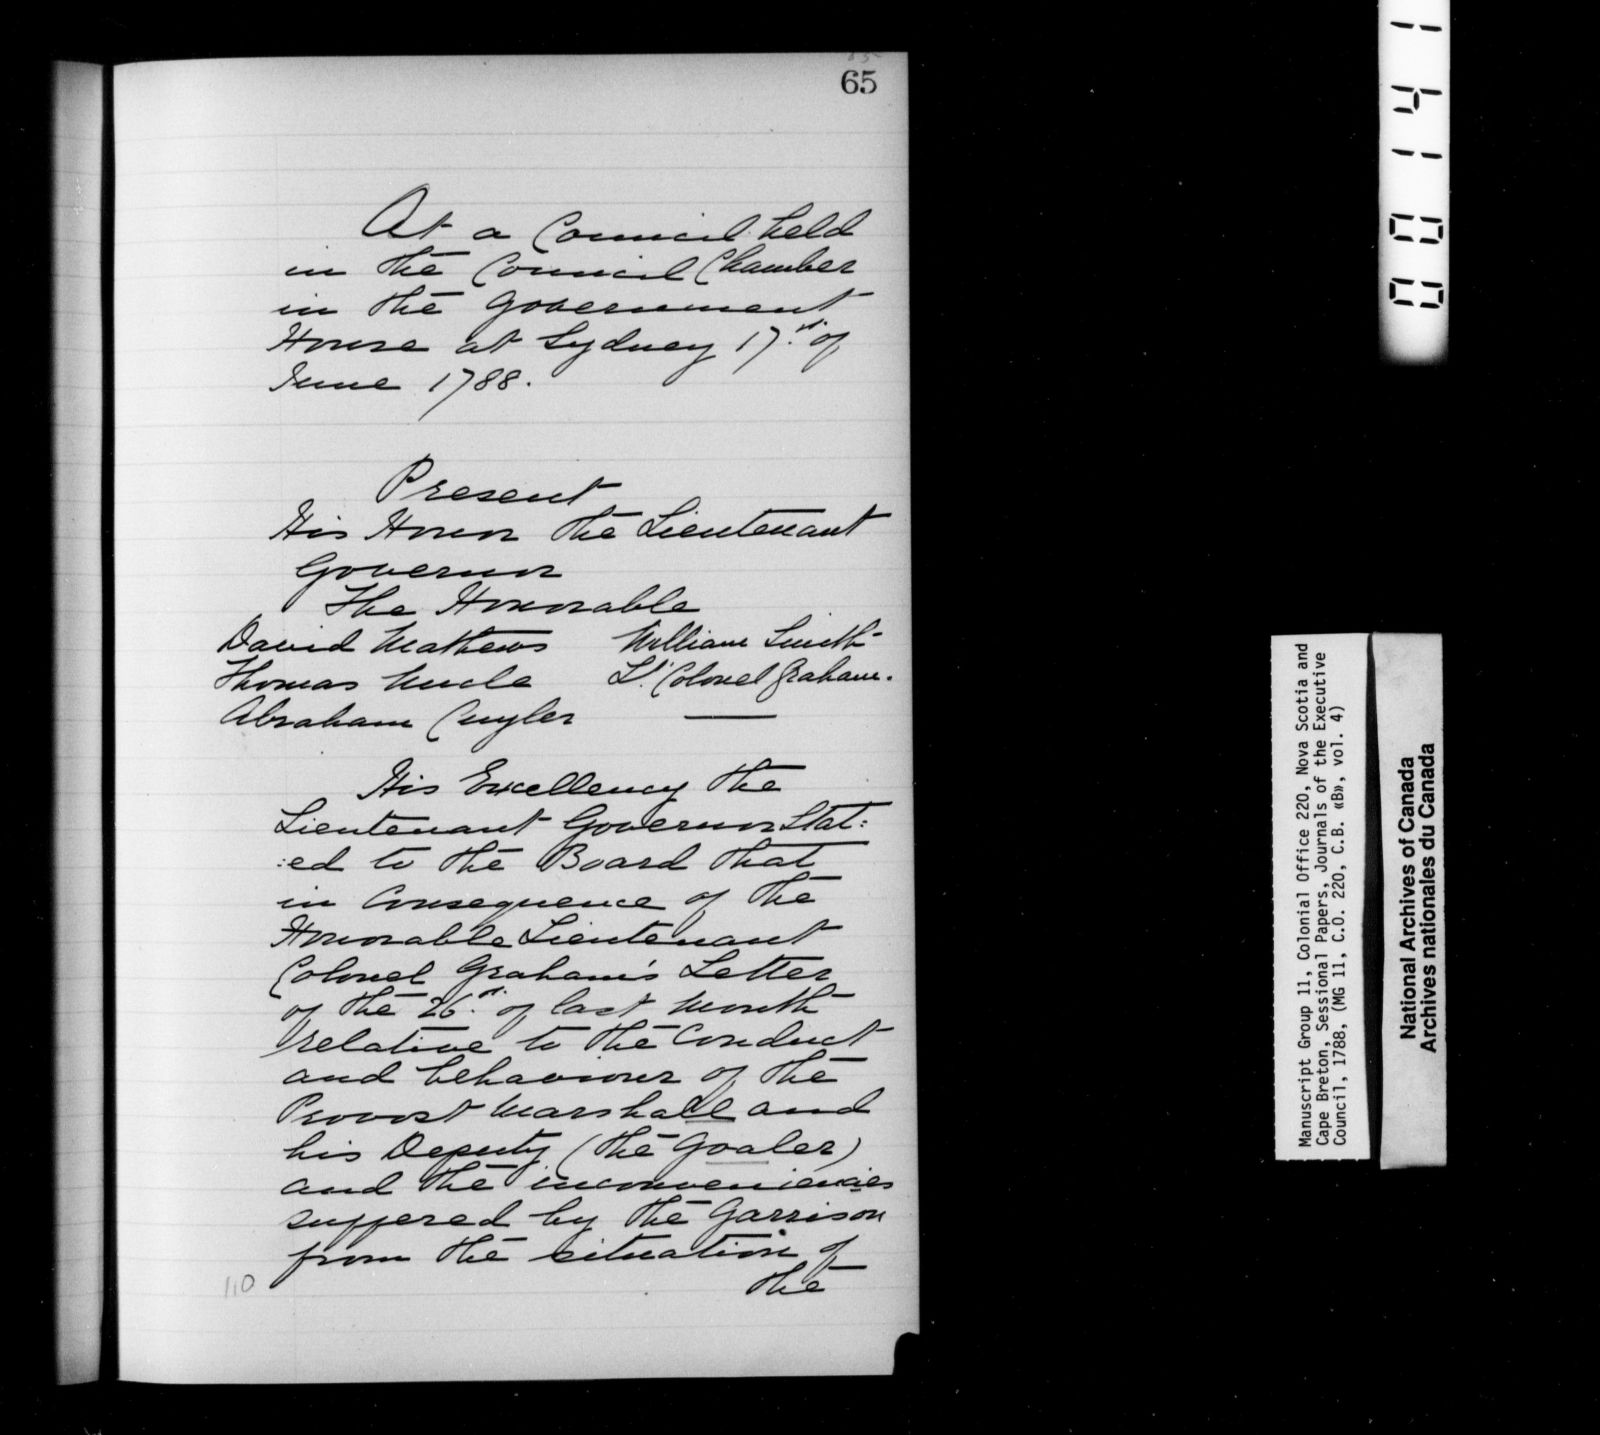 65
At a Council held
in the Council Chamber
in the Government
House at Sydney 17th. of
June 1788.
Present
His Honor the Lieutenant
Governor
The Honorable
David Mathews William Smith
Thomas Uncle Lt. Colonel Graham.
Abraham Cuyler
His Excellency the
Lieutenant Governor Stat:
:ed to the Board that
in Consequence of the
Honorable Lieutenant
Colonel Graham's Letter
of the 26th. of last Month
relative to the Conduct
and behaviour of the
Provost Marshall and
his Deputy (the Goaler)
and the inconveniencies
suffered by the Garrison
from the situation of
the
110
00141
Manuscript Group 11, Colonial Office 220, Nova Scotia and
Cape Breton, Sessional Papers, Journals of the Executive
Council, 1788, (MG 11, C.O. 220, C.B. «B», vol. 4)
National Archives of Canada
Archives nationales du Canada